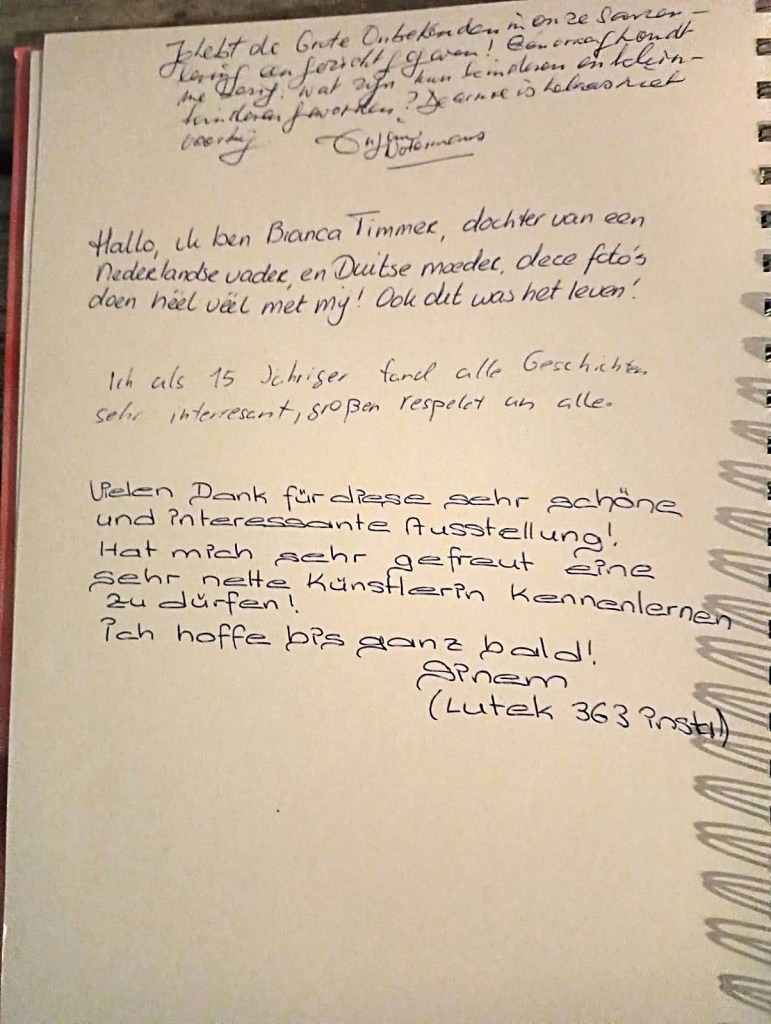 Je hebt de Grote Onbekenden in onze Samen-
leving een gezicht gegeven! Eén vraag houdt
me bezig: wat zijn hun kinderen en klein-
kinderen geworden? De armoe is helaas niet
voorbij.
Hallo, ik ben Bianca Timmer, dochter van een
Nederlandse vader, en Duitse moeder, deze foto's
doen héél véél met mij! Ook dit was het leven!
Ich als 15 Jähriger fand alle Geschichten
sehr interresant, großen respekt an alle.
Vielen Dank für diese sehr schöne
und interessante Ausstellung!
Hat mich sehr gefreut eine
sehr nette Künstlerin kennenlernen
zu dürfen!
ich hoffe bis ganz bald!
Sinem
(Lutek 363 insta)